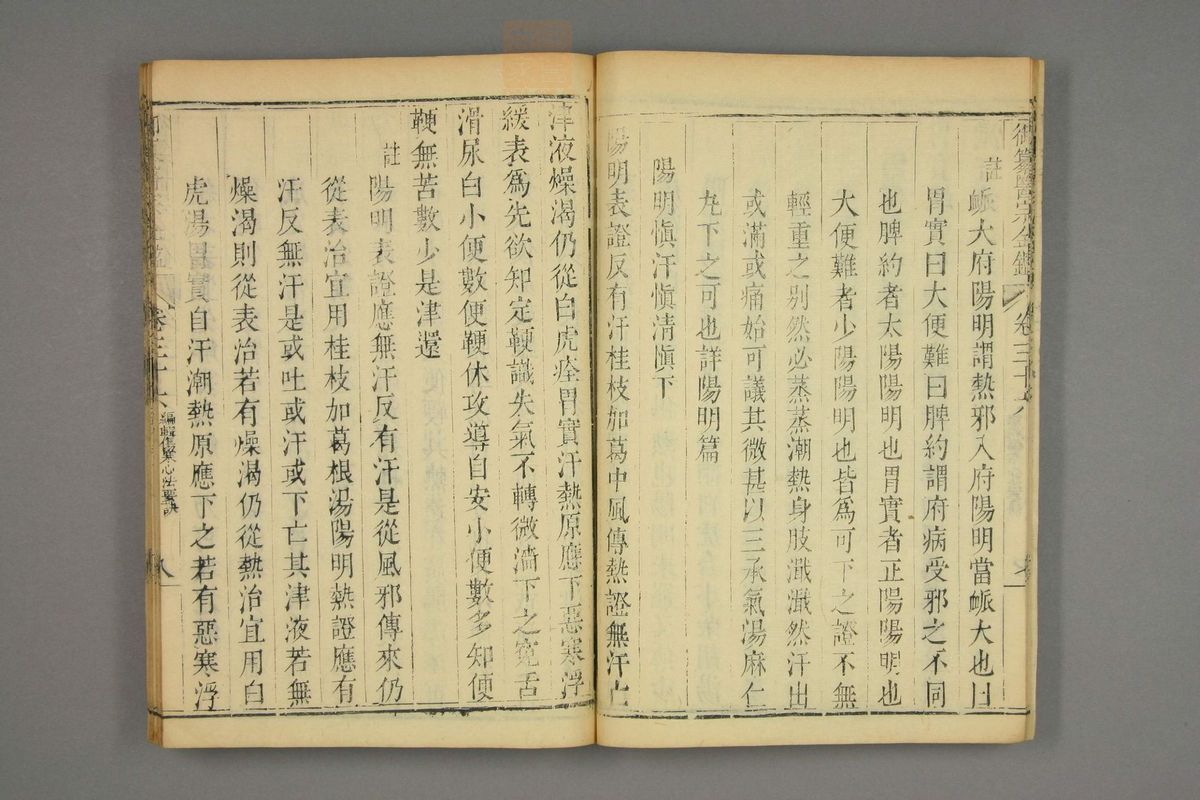 御纂醫宗金鑑 卷三十六
註 脈大府陽明謂熱邪入府陽明當脈大也曰
胃實曰大便難曰脾約謂府病受邪之不同
也脾約者太陽陽明也胃實者正陽陽明也
大便難者少陽陽明也皆為可下之證不無
輕重之别然必蒸蒸潮熱身肢濈濈然汗出
或滿或痛始可議其微甚以三承氣湯麻仁
丸下之可也詳陽明篇
陽明慎汗慎清慎下
陽明表證反有汗桂枝加葛中風傳熱證無汗亡
津液燥渴仍從白虎痊胃實汗熱原應下惡寒浮
緩表為先欲知定鞕識失氣不轉微溏下之寃舌
滑尿白小便數便鞕休攻導自安小便數多知便
鞕無苦數少是津還
註 陽明表證應無汗反有汗是從風邪傳來仍
從表治宜用桂枝加葛根湯陽明熱證應有
汗反無汗是或吐或汗或下亡其津液若無
燥渴則從表治若有燥渴仍從熱治宜用白
虎湯胃實自汗潮熱原應下之若有惡寒浮
卷三十六 編輯傷寒心法要訣